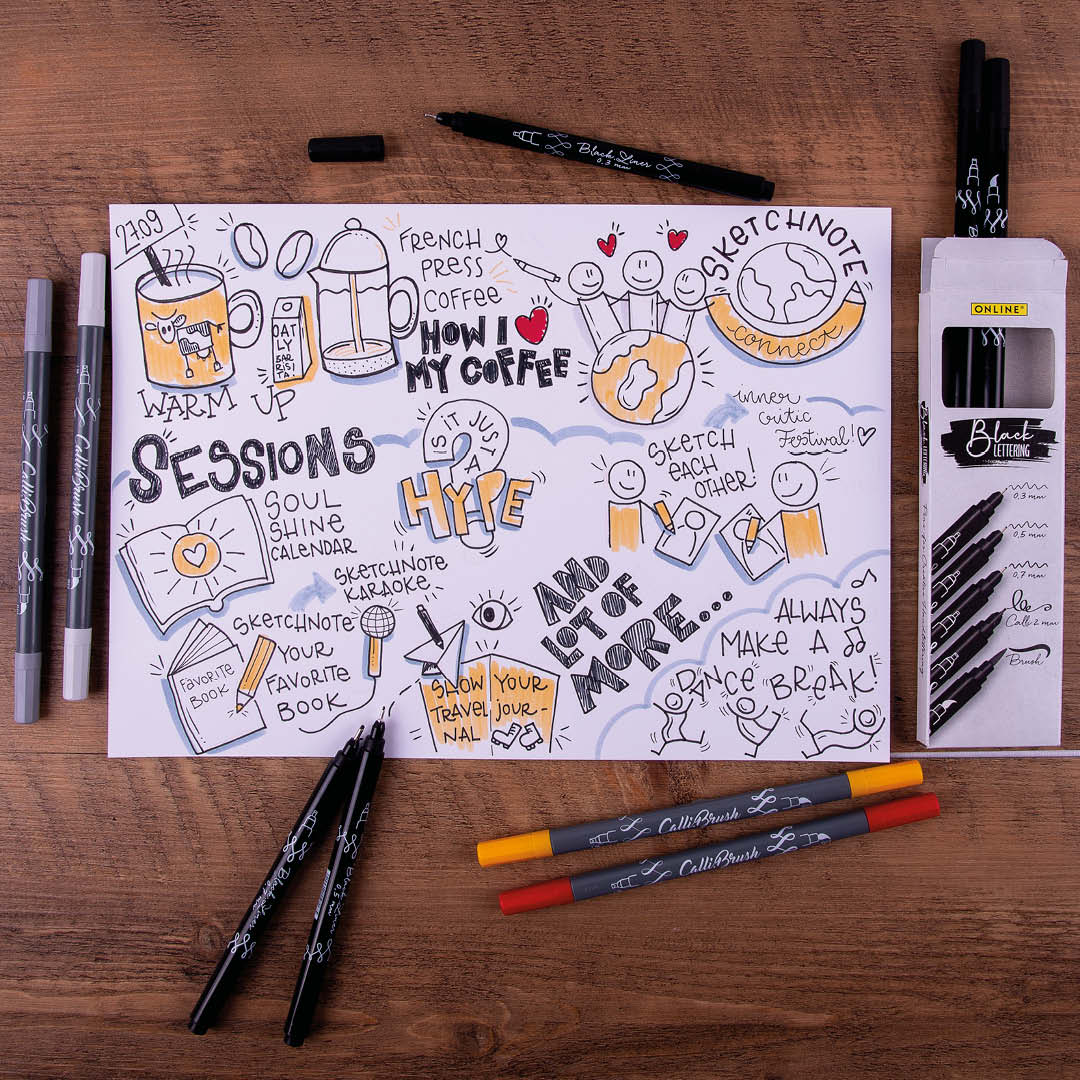 Black Liner
0.3 mm
27.09
OAT
LY
BAR
RIS
TA!
WARM UP
FRENCH
PRESS
COFFEE
HOW I
MY COFFEE
SKETCHNOTE
connect
SESSIONS
SOUL
SHINE
CALENDAR
IS IT JUST
A
HYPE
inner
critic
Festival!
SKETCH
EACH
OTHER!
SKETCHNOTE
KARAOKE
SKETCHNOTE
YOUR
FAVORITE
BOOK
FAVORITE
BOOK
SHOW YOUR
TRAVEL JOUR-
NAL
AND
LOT OF
MORE...
ALWAYS
MAKE A
DANCE BREAK!
ONLINE
Black
LETTERING
0,3 mm
0,5 mm
0,7 mm
Calli 2 mm
Brush
CalliBrush
CalliBrush
CalliBrush
CalliBrush
Black Liner
Black Liner
0.5 mm